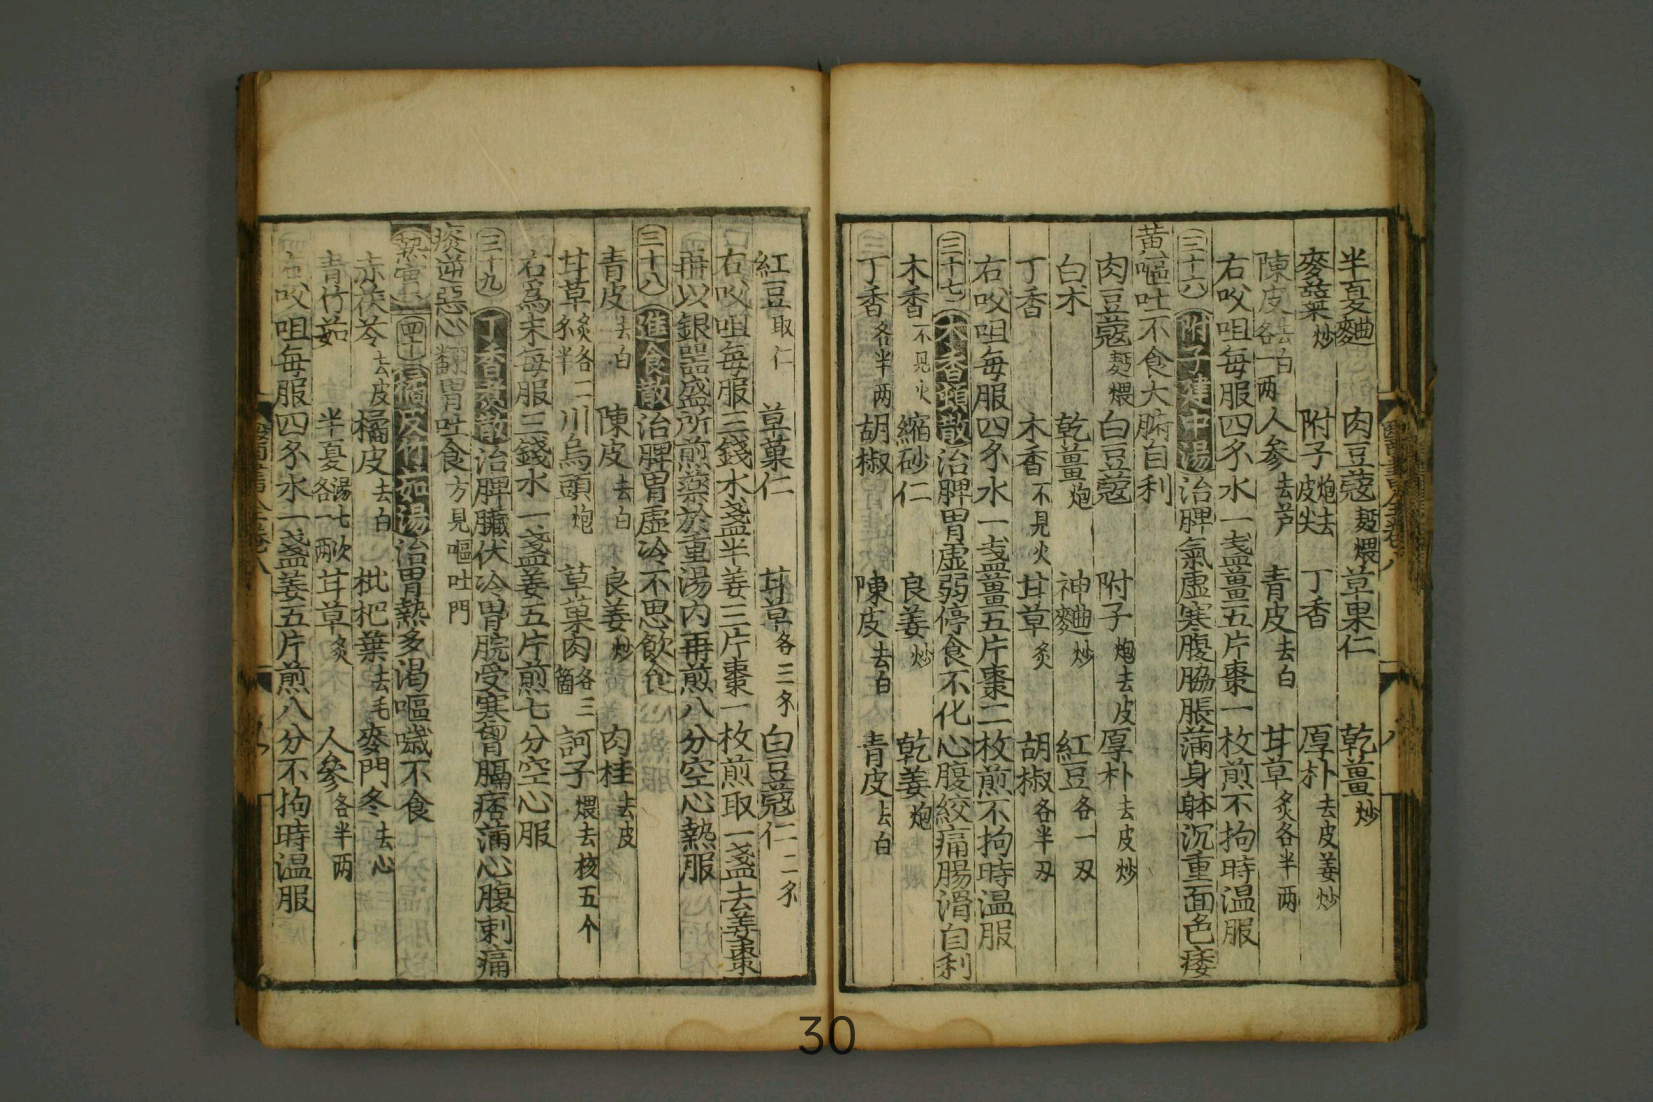 半夏麯 肉豆蔻麪煨 草果仁 乾薑炒
麥蘖炒 附子炮去皮尖 丁香 厚朴去皮姜炒
陳皮去白各一两 人参去芦 青皮去白 甘草炙各半两
右㕮咀每服四钅水一盏薑五片棗一枚煎不拘時温服
三十六 附子建中湯 治脾氣虚寒腹脇脹滿身躰沉重面色痿
黄嘔吐不食大腑自利
肉豆蔻麪煨 白豆蔻 附子炮去皮 厚朴去皮炒
白术 乾薑炮 神麯炒 紅豆各一刄
丁香 木香不見火 甘草炙 胡椒各半刄
右㕮咀每服四钅水一盏薑五片棗二枚煎不拘時温服
三十七 木香順散 治脾胃虚弱停食不化心腹絞痛腸滑自利
木香不見火 縮砂仁 良姜炒 乾姜炮
丁香各半两 胡椒 陳皮去白 青皮去白
紅豆取仁 草菓仁 甘草各三钅 白豆蔻仁二钅
右㕮咀每服三錢水盏半姜三片棗一枚煎取一盏去姜棗
再以銀器盛所煎藥於重湯内再煎八分空心熱服
三十八 進食散 治脾胃虚冷不思飲食
青皮去白 陳皮去白 良姜炒 肉桂去皮
甘草炙各二钅半 川烏頭炮 草菓肉各三箇 訶子煨去核五个
右爲末每服三錢水一盏姜五片煎七分空心服
三十九 丁香煮散 治脾臓伏冷胃脘受寒胷膈痞滿心腹刺痛
痰逆惡心翻胃吐食方見嘔吐門
熱 四十 橘皮竹茹湯 治胃熱多渴嘔噦不食
赤茯苓去皮 橘皮去白 枇杷葉去毛 麥門冬去心
青竹茹 半夏湯七次各一两 甘草炙 人參各半两
右㕮咀每服四钅水一盏姜五片煎八分不拘時温服
30